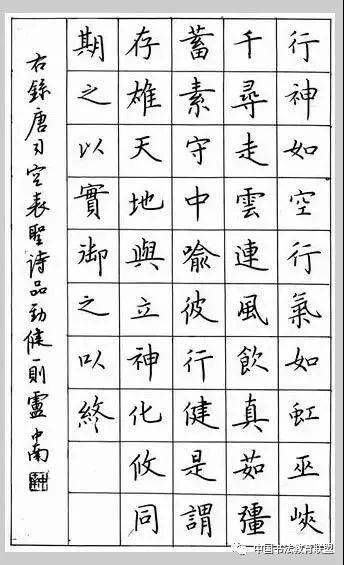 行神如空行氣如虹巫峽
千尋走雲連風飲真茹彊
蓄素守中喻彼行健是謂
存雄天地與立神化攸同
期之以實御之以終
右錄唐司空表聖詩品勁健一則盧中南
中国书法教育联盟